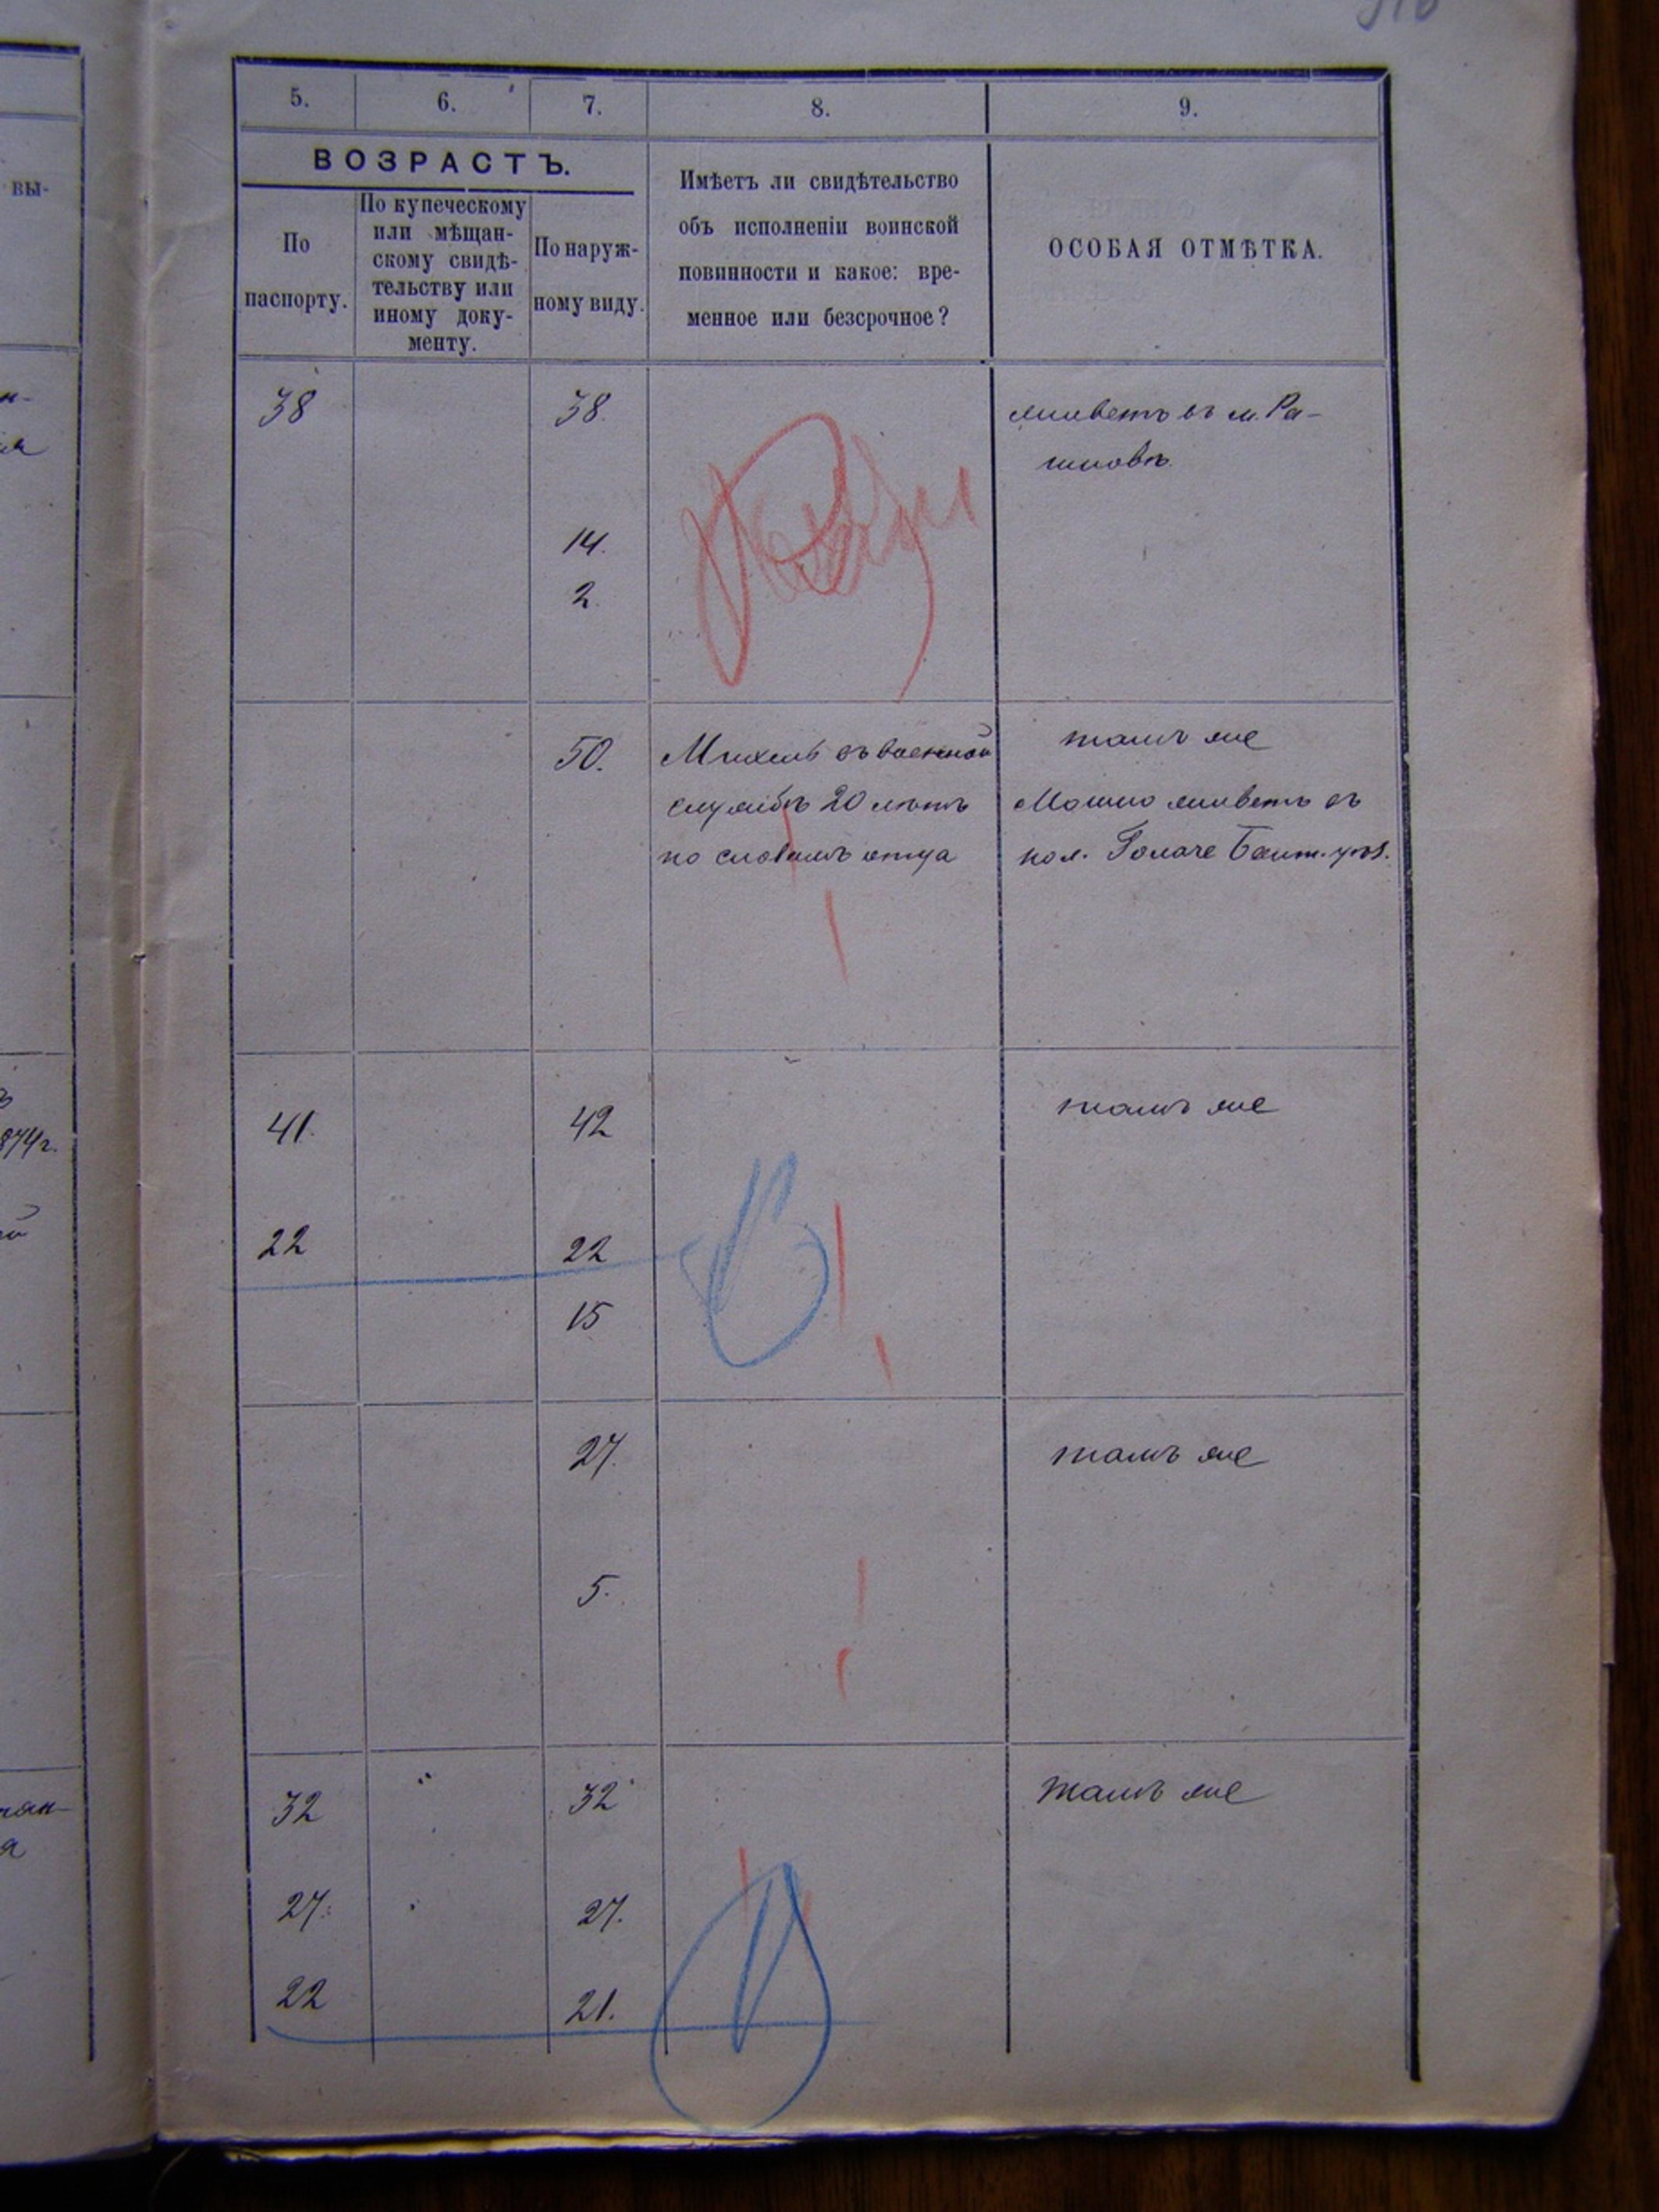 5. 6. 7. 8. 9.
ВОЗРАСТЪ.
По
паспорту.
По купеческому
или мѣщан-
скому свидѣ-
тельству или
иному доку-
менту.
По наруж-
ному виду.
Имѣетъ ли свидѣтельство
объ исполненіи воинской
повинности и какое: вре-
менное или безсрочное?
ОСОБАЯ ОТМѢТКА.
вы-
38 38. живетъ въ м. Ра-
шковѣ
14.
2.
50.
Михель въ военной
службѣ 20 лѣтъ
по словамъ отца
тамъ же
Мошко живетъ въ
кол. Бант. уѣз.
41. 42 тамъ же
874г.
22 22
15
27. тамъ же
5.
32 32 тамъ же
27. 27.
22 21.